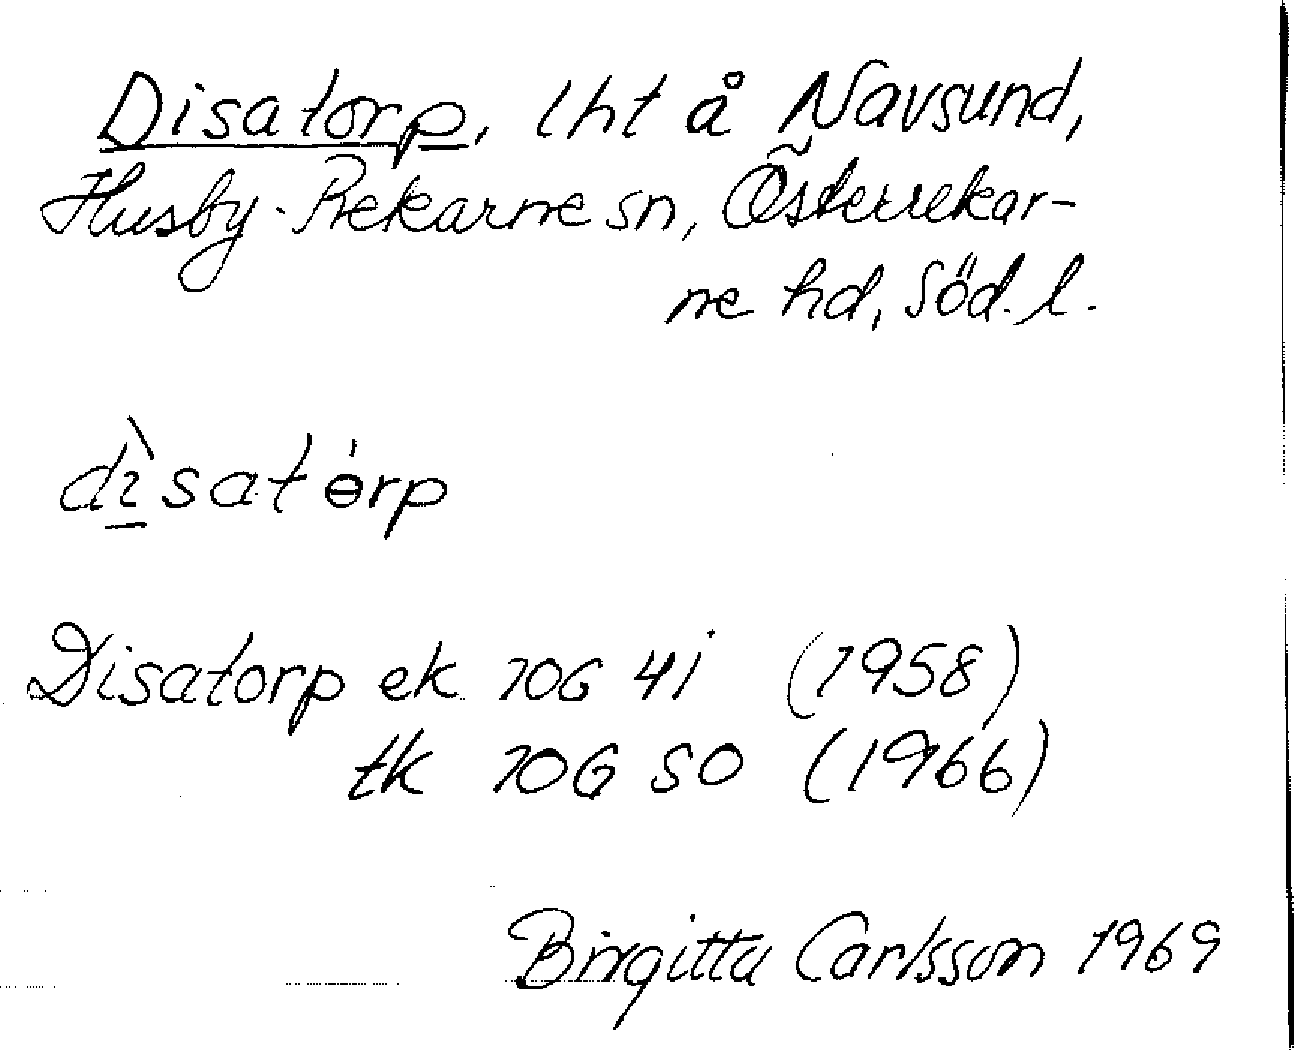 Disatorp, lht å Navsund,
Husby-Rekarne sn, Österrekar-
ne hd, Söd. l.
dìsatɵ́rp
Disatorp ek 10G 4i (1958)
tk 10G SO (1966)
Birgitta Carlsson 1969